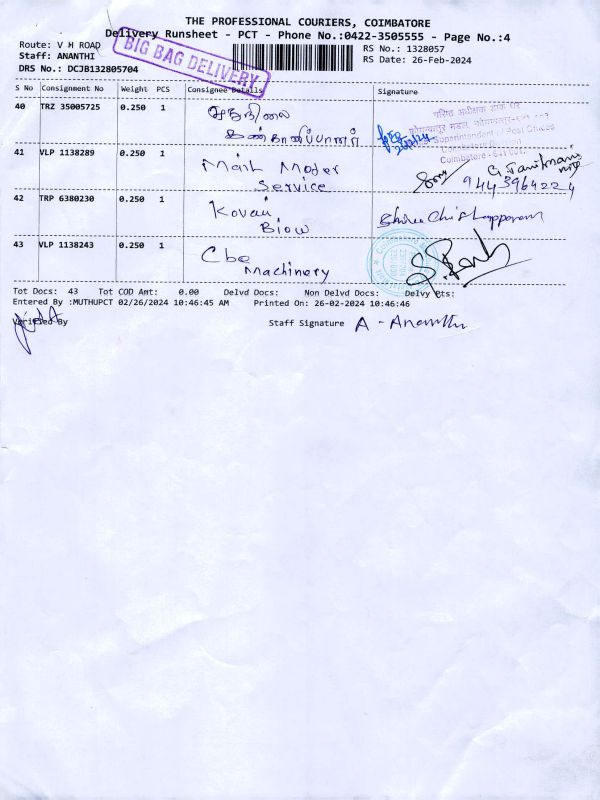 THE PROFESSIONAL COURIERS, COIMBATORE
Delivery Runsheet - PCT - Phone No.:0422-3505555 - Page No.:4
Route: V H ROAD
RS No.: 1328057
Staff: ANANTHI
RS Date: 26-Feb-2024
DRS No.: DCJB132805704
BIG BAG DELIVERY
S No Consignment No Weight PCS Consignee Details Signature
40 TRZ 35005725 0.250 1
கண்காணிப்பாளர்
Superintendent of Post Offices
Coimbatore
41 VLP 1138289 0.250 1 Main Moder
Service
9443964224
42 TRP 6380230 0.250 1 Kovai
43 VLP 1138243 0.250 1 Cbe
Machinery
Tot Docs: 43 Tot COD Amt: 0.00 Delvd Docs: Non Delvd Docs: Delvy Pts:
Entered By :MUTHUPCT 02/26/2024 10:46:45 AM Printed On: 26-02-2024 10:46:46
Verified By Staff Signature A - Ananthi